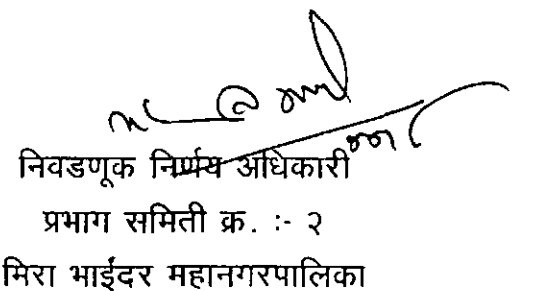 निवडणूक निर्णय अधिकारी
प्रभाग समिती क्र. :- २
मिरा भाईंदर महानगरपालिका